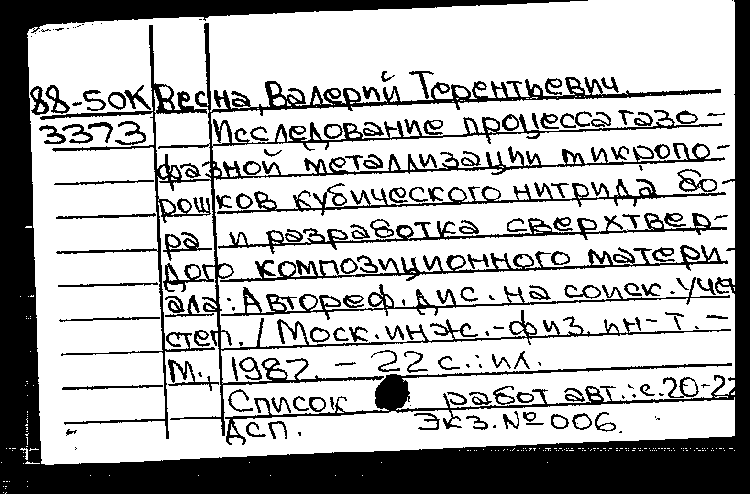 88-50К Весна, Валерий Терентьевич.
3373 Исследование процесса газо-
фазной металлизации микропо-
рошков кубического нитрида бо-
ра и разработка сверхтвер-
дого композиционного матери-
ала: Автореф. дис. на соиск. учен
степ. / Моск. инж.-физ. ин-т. -
М., 1987. - 22 с.: ил.
Список работ авт.: с. 20-22
ДСП. Экз. № 006.